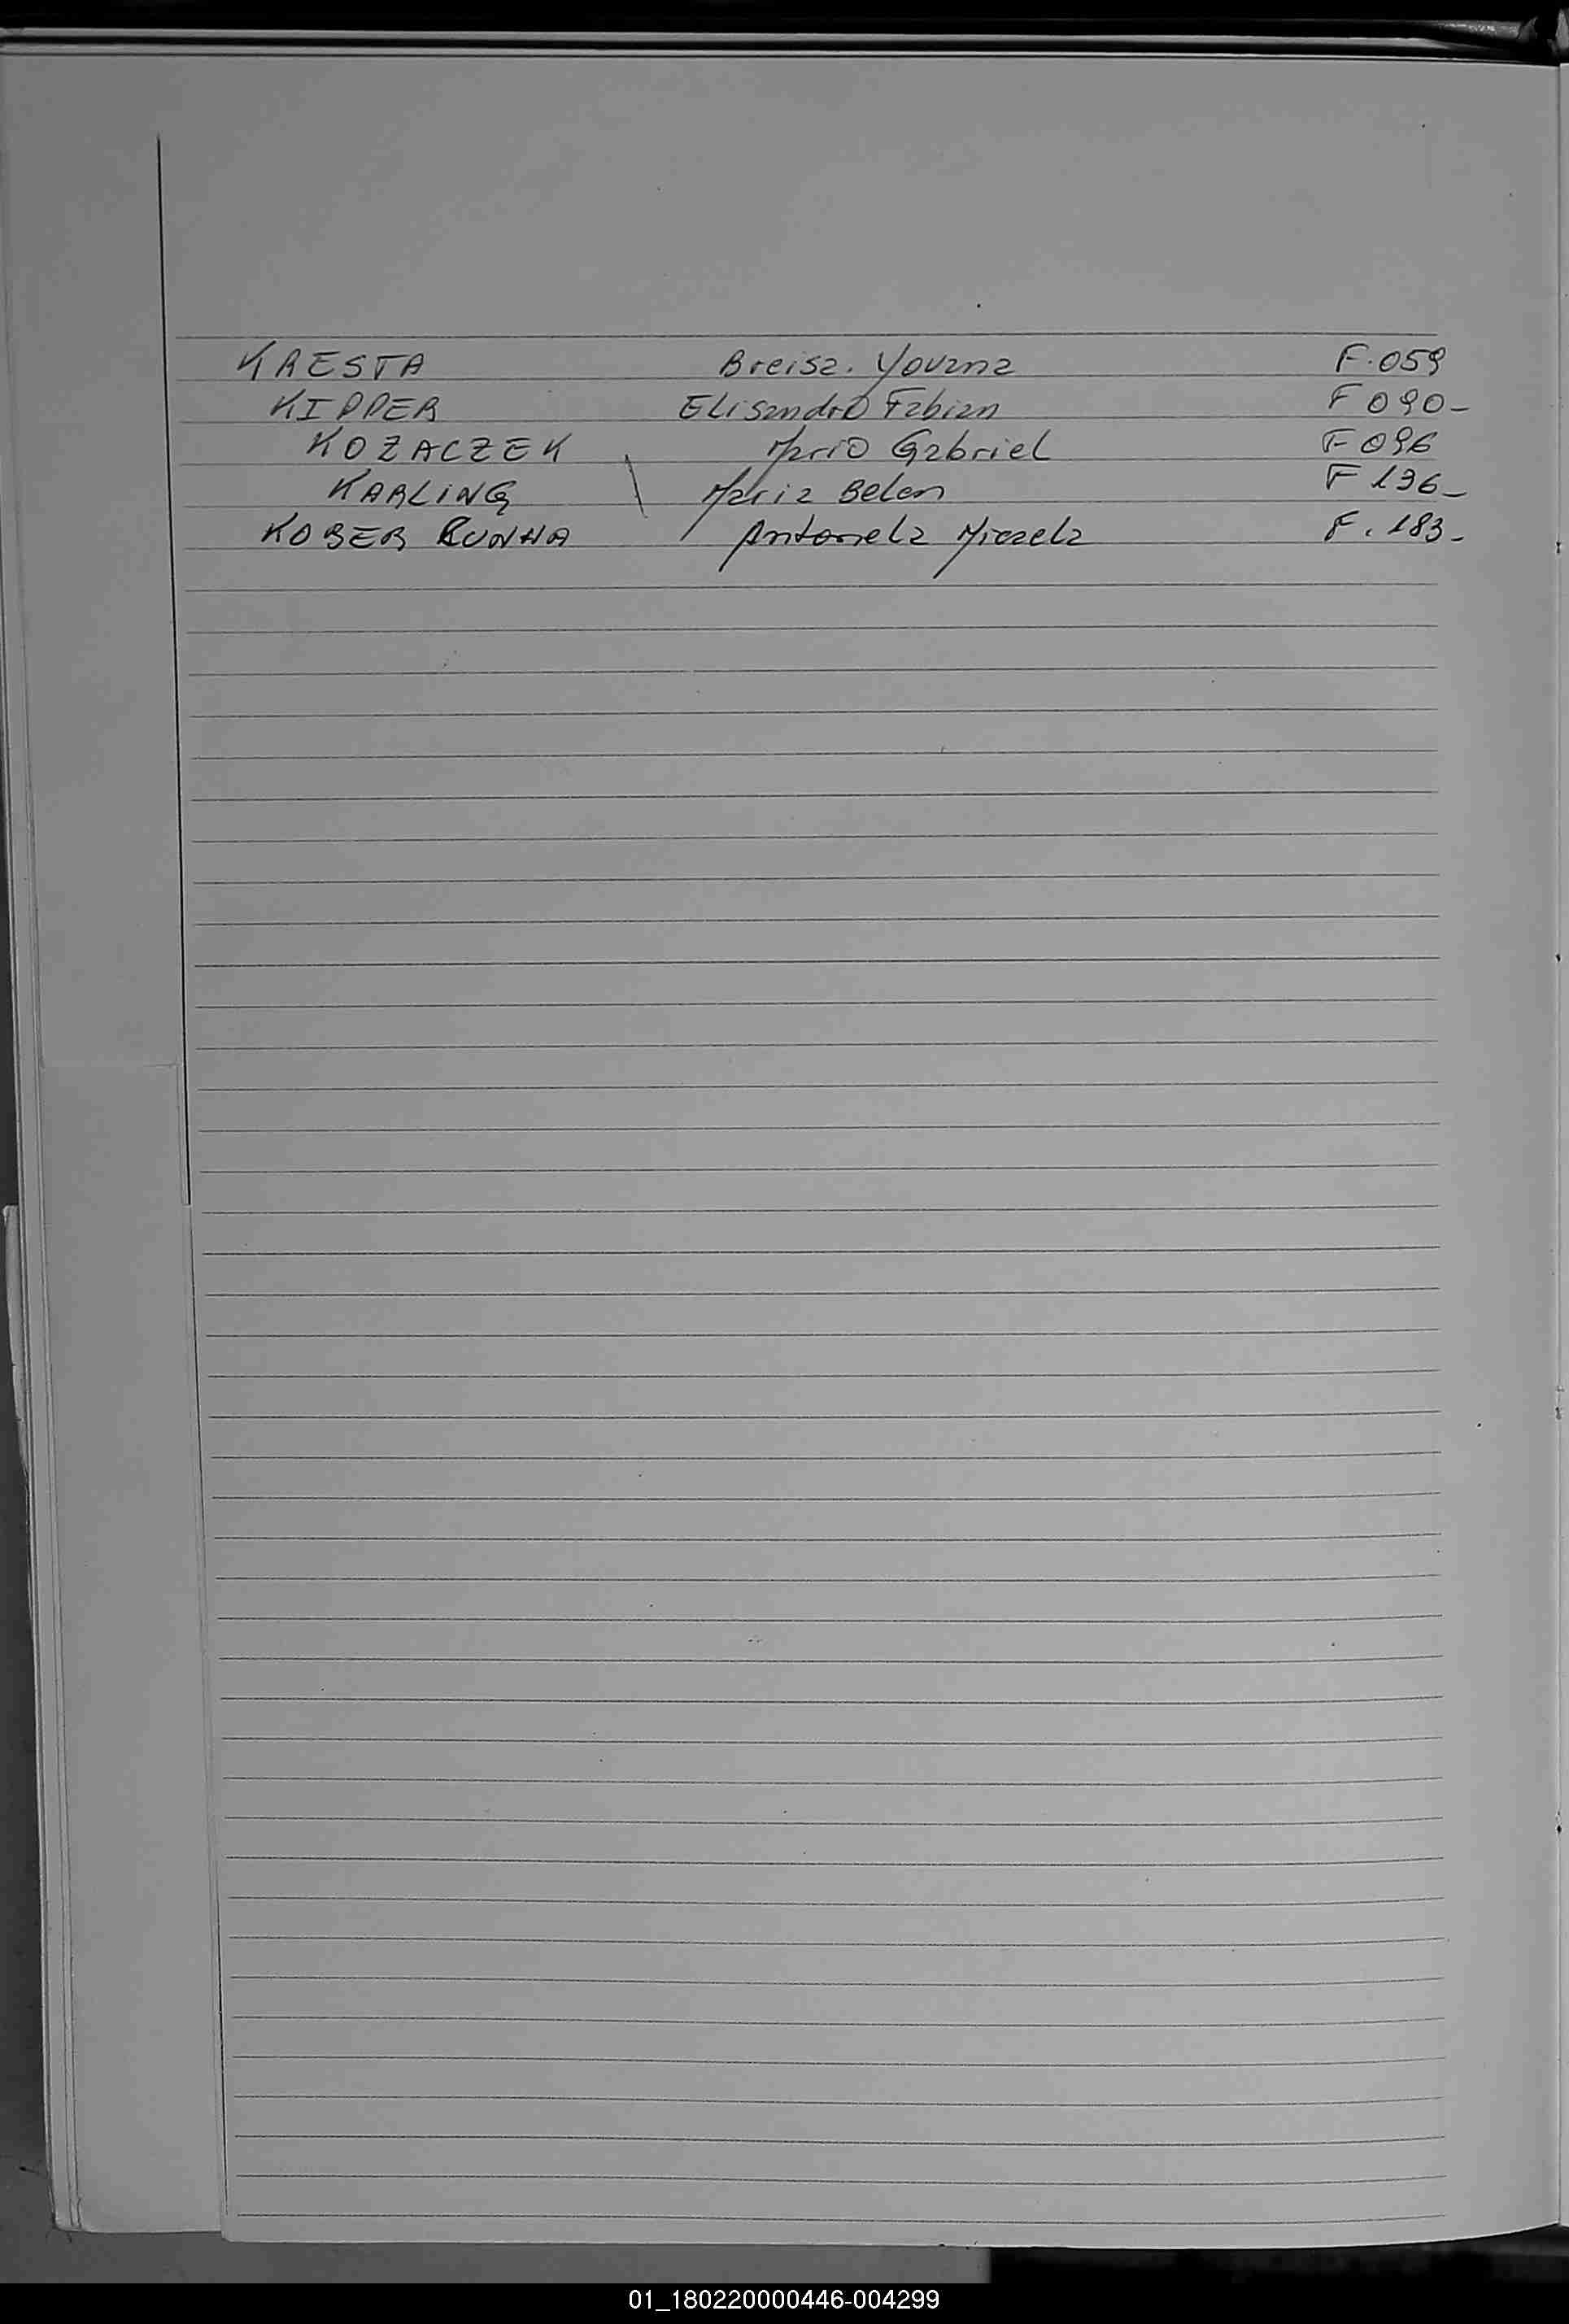 KAESTA Breisa. Yovana F.059
KIPPER Elisandro Fabian F 090-
KOZACZEK Mario Gabriel F 096
KARLING Maria Belen F 136-
KOBER CUNHA Antonela Micaela F. 183-
01_180220000446-004299